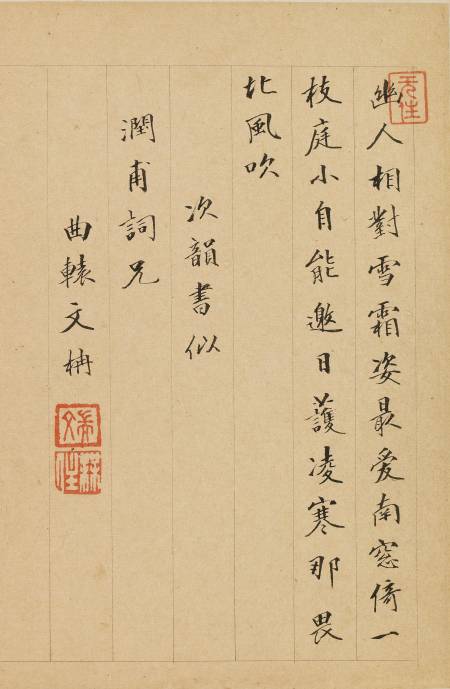 幽人相對雪霜姿最爱南窓倚一
枝庭小自能邀日護凌寒那畏
北風吹
次韻書似
潤甫詞兄
曲轅文枏